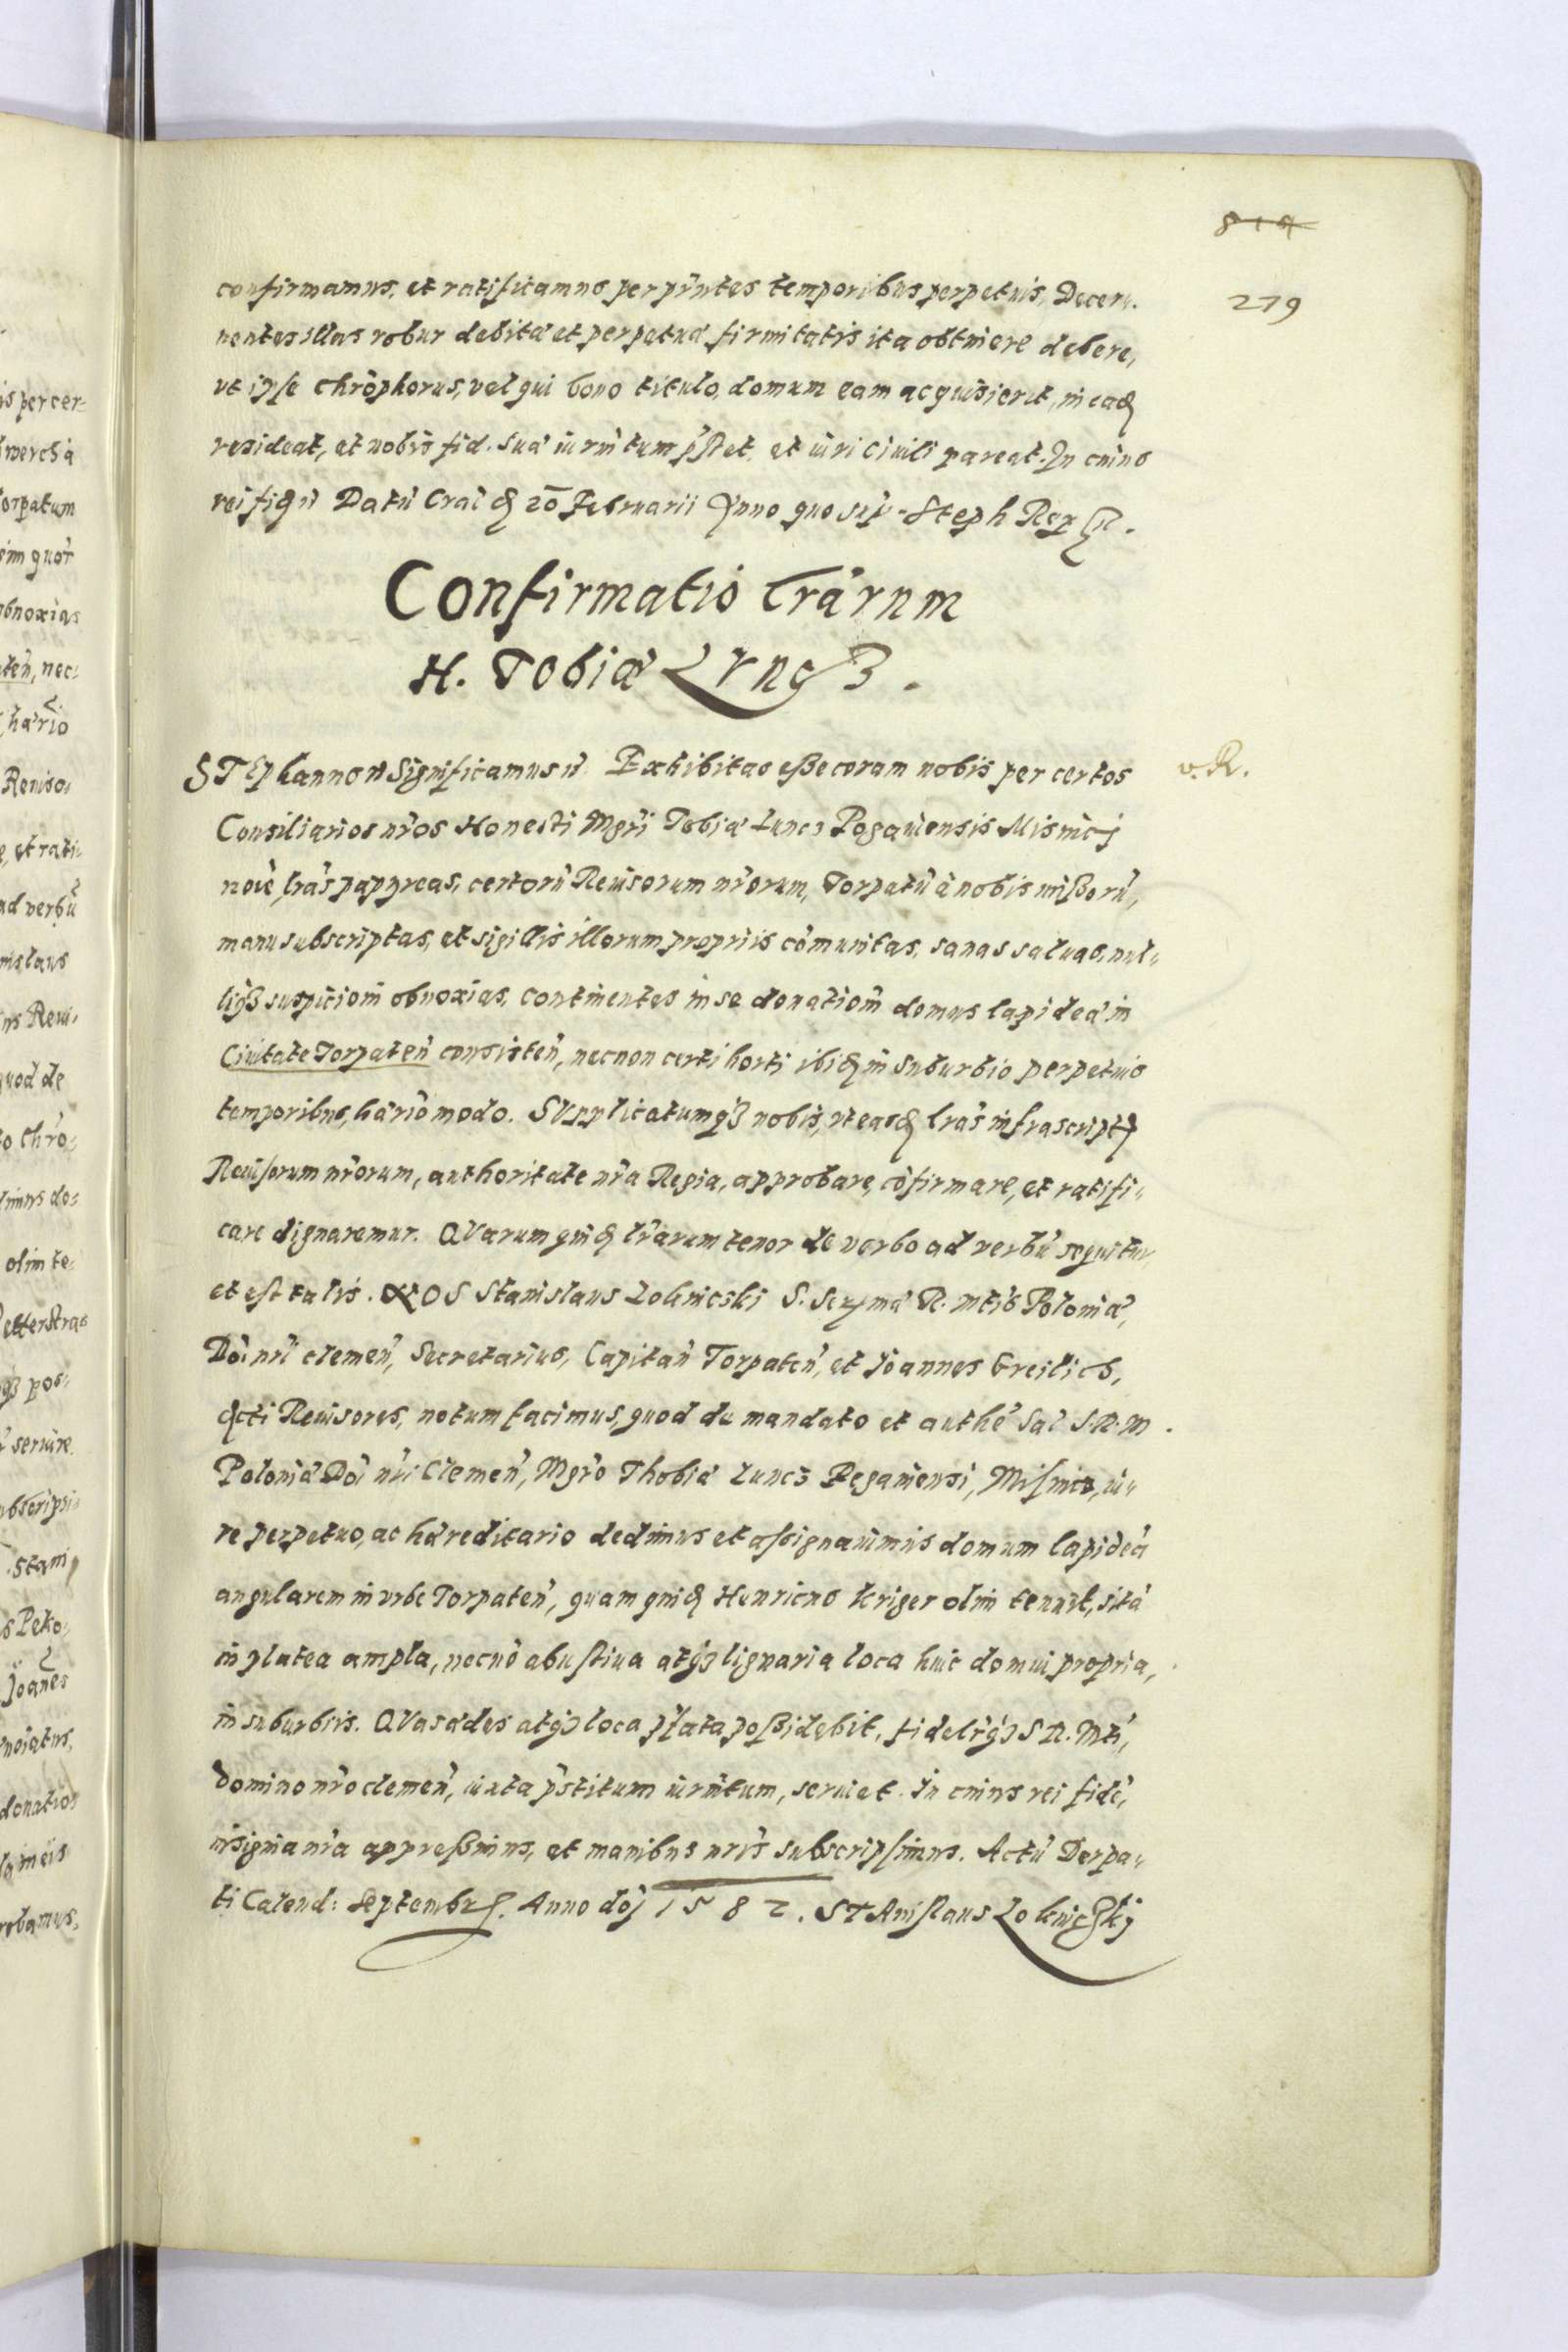 819
279
confirmamus, et ratificamus per pñntes temporibus perpetuis, Decern.
nentes illas robur debitæ et perpetuæ firmitatis ita obtinere debere,
vt ipse Chrõphorus, vel qui bono titulo, domum eam acquisierit, in eadẽ
resideat, et nobis fid. suæ iurm̃tum p̃stet, et iuri Ciuili pareat. In cuius
rei fidẽ Datũ 20 Februarii Anno quo sup̃. Steph Rex
Confirmatio lrãrum
H. Tobiæ Lyncz.
STEphannus Significamus Exhibitas eße coram nobis per certos
v. R.
Consiliarios nr̃os Honesti Mgr̃i Tobiæ Luncz Pegauiensis Misnicj
noiẽ, lrãs papyreas, certorũ Reuisorum nr̃orum, Torpatũ à nobis mißorũ,
manu subscriptas, et sigillis illorum propriis cõmunitas, sanas saluas, nul-
liqz suspicioni obnoxias, continentes in se donatiom̃ domus lapideæ in
Ciuitate Torpateñ consisteñ, necnon certi horti ibidẽ in suburbio perpetuis
temporibus, hærio modo. SVpplicatumqz nobis, vt easdẽ lrãs infrascript
Reuisorum nr̃orum, authoritate nr̃a Regia, approbare, cõfirmare, et ratifi-
care dignaremur. QVarum quidẽ lr̃arum tenor de verbo ad verbũ sequitur
et est talis. NOS Stanislaus Lokniczki S. Sermæ R. Mtis Poloniæ,
Doi nri clemeñ, Secretarius, Capitañ Torpateñ, et Joannes Greilich,
dicti Reuisores, notum facimus, quod de mandato et authẽ Sac S. R. M.
Poloniæ Doi nri Clemeñ, Mgr̃o Thobiæ Luncz Pegauiensi, Misnico, iu-
re perpetuo, ac hæreditario dedimus et assignauimus domum lapideã
angularem in vrbe Torpateñ, quam quidẽ Henricus Kriger olim tenuit, sitã
in platea ampla, necnõ abustiua atqz lignaria loca huic domui propria,
in suburbiis. QVas ædes atqz loca p̃fata poßidebit, fidelr̃qz S R. Mti,
domino nr̃o clemeñ, iuxta p̃stitum iurm̃tum, seruiet. In cuius rei fidẽ,
insignia nr̃a appreßimus, et manibus nris subscripsimus. Actũ Derpa-
ti Calend: Septembr. Anno doj 1582. STAnislaus Lokniczkj